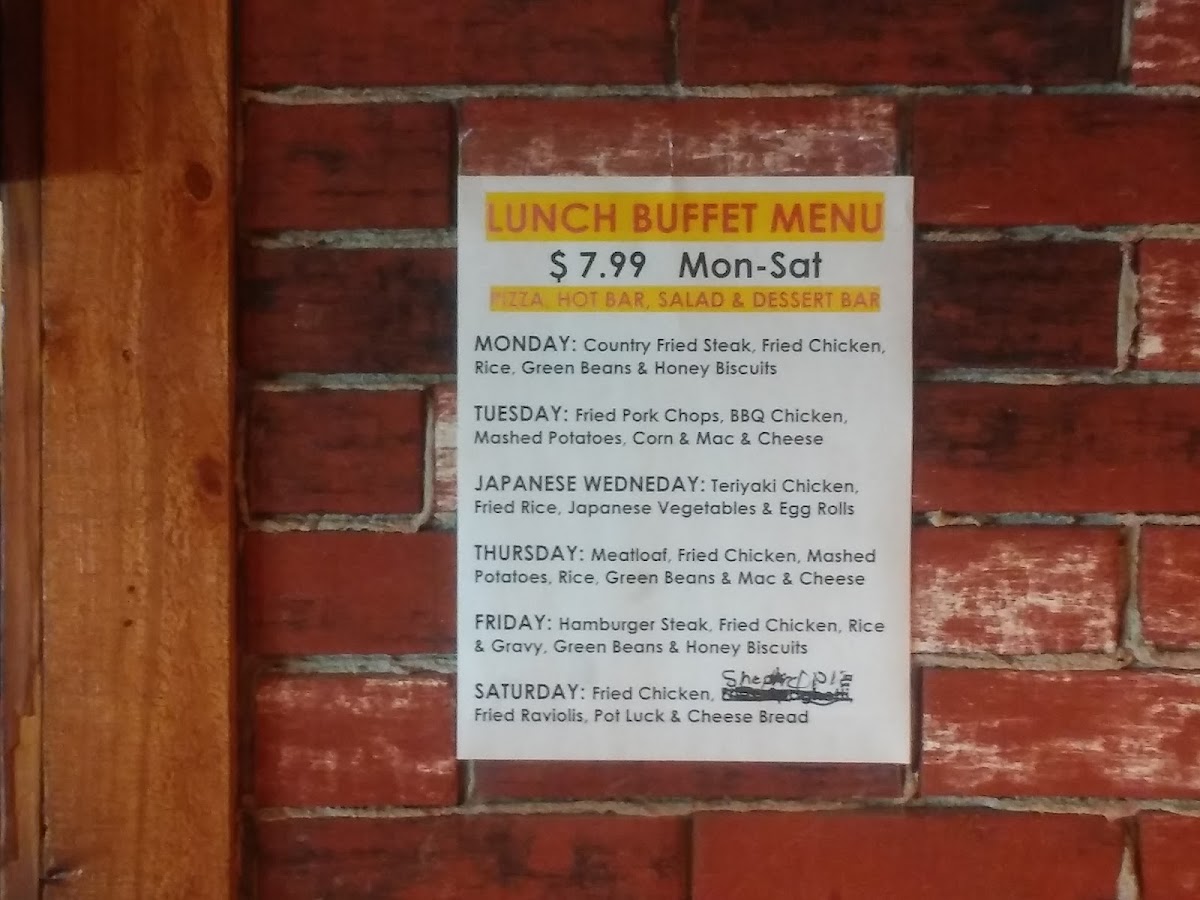 LUNCH BUFFET MENU
$ 7.99 Mon-Sat
PIZZA, HOT BAR, SALAD & DESSERT BAR
MONDAY: Country Fried Steak, Fried Chicken,
Rice, Green Beans & Honey Biscuits
TUESDAY: Fried Pork Chops, BBQ Chicken,
Mashed Potatoes, Corn & Mac & Cheese
JAPANESE WEDNEDAY: Teriyaki Chicken,
Fried Rice, Japanese Vegetables & Egg Rolls
THURSDAY: Meatloaf, Fried Chicken, Mashed
Potatoes, Rice, Green Beans & Mac & Cheese
FRIDAY: Hamburger Steak, Fried Chicken, Rice
& Gravy, Green Beans & Honey Biscuits
SATURDAY: Fried Chicken, PIE
Fried Raviolis, Pot Luck & Cheese Bread